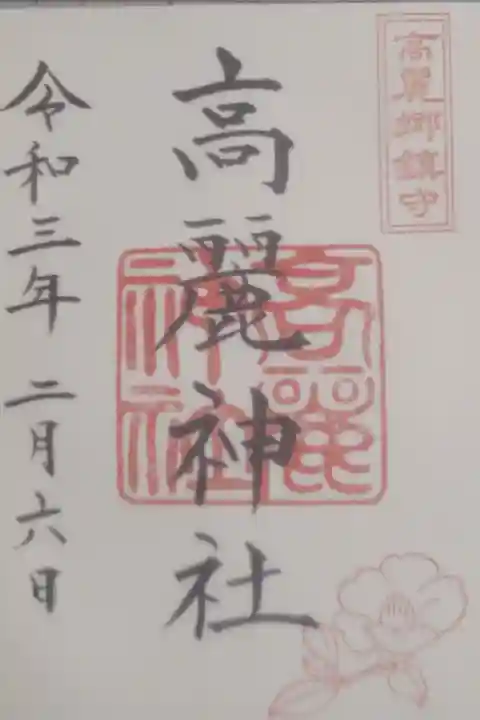 高麗郷鎮守
高麗神社
高麗神社
令和三年二月六日